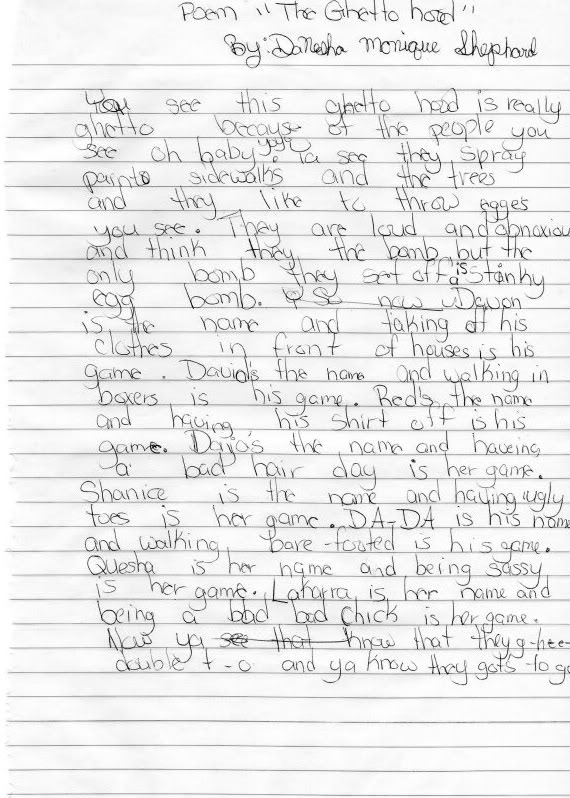 Poem "The Ghetto hood"
By: DaNesha Monique Shephard
You see this ghetto hood is really
ghetto because of the people you
see oh baby. ya see they spray
paint sidewalks and the trees
and they like to throw egges
you see. They are loud and obnoxiou
and think they the bomb but the
only bomb they set off is a stanky
egg bomb. now Devon
is the name and taking off his
clothes in front of houses is his
game. David's the name and walking in
boxers is his game. Red's the name
and having his shirt off is his
game. Daja's the name and haveing
a bad hair day is her game.
Shanice is the name and having ugly
toes is her game. DA-DA is his name
and walking bare-footed is his game.
Quesha is her name and being sassy
is her game. Lakarra is her name and
being a bad bad chick is her game.
Now ya see that know that they g-hee-
double t-o and ya know they gots to go